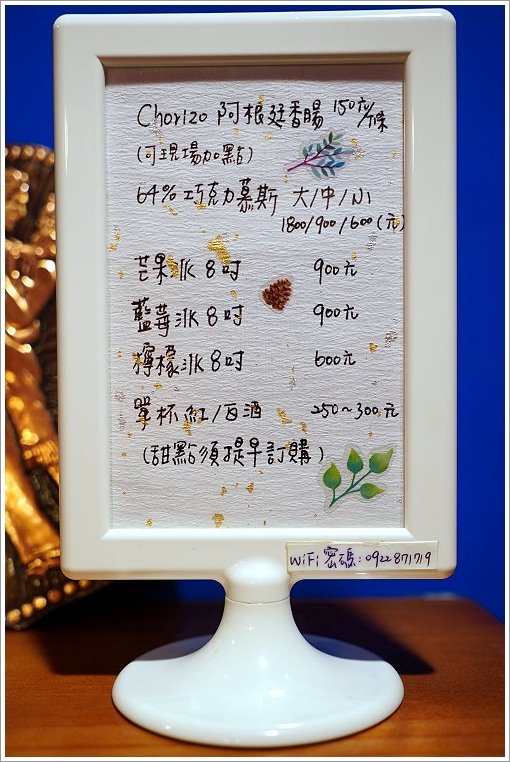 Chorizo 阿根廷香腸 150元/條
(可現場加點)
64% 巧克力慕斯 大/中/小
1800/900/600(元)
芒果冰K 8吋 900元
藍莓冰K 8吋 900元
檸檬冰K 8吋 600元
單杯紅/白酒 250~300元
(甜點須提早訂購)
WiFi 密碼:0922871719